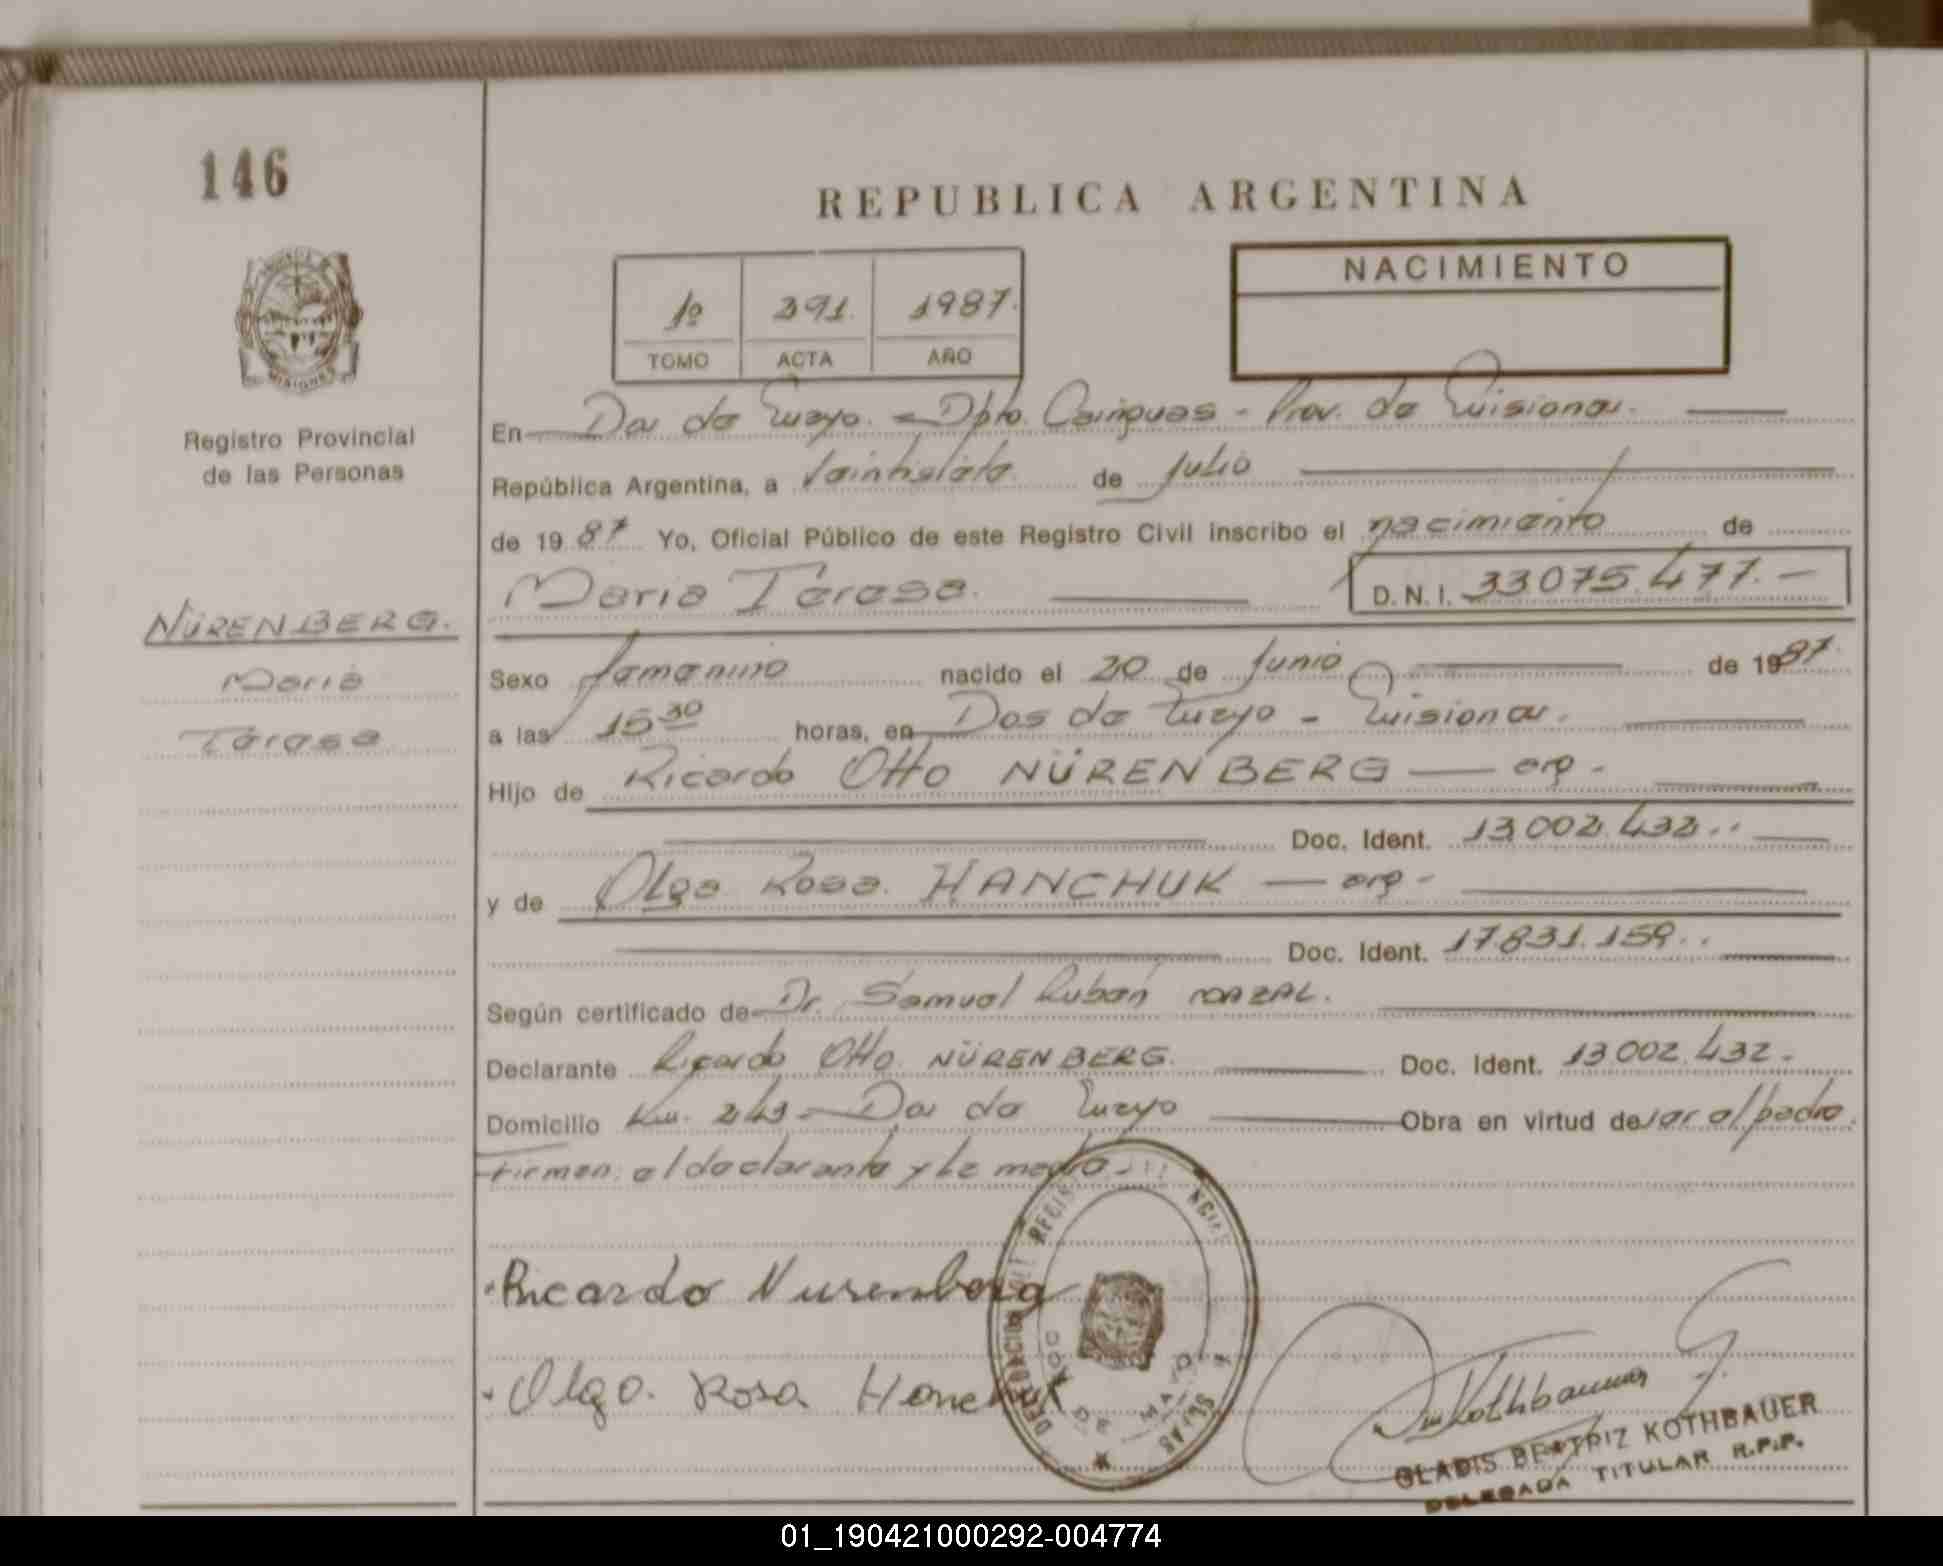 146
REPUBLICA ARGENTINA
1º 391. 1987.
TOMO ACTA AÑO
NACIMIENTO
MISIONES
Registro Provincial
de las Personas
En Dos de Mayo. - Dpto. Cainguas - Prov. de Misiones.
República Argentina, a de Julio
de 1987 Yo, Oficial Público de este Registro Civil inscribo el nacimiento de
Maria Teresa. D.N.I. 33.075.477.-
NÜRENBERG.
Maria
Teresa
Sexo femenino nacido el 20 de Junio de 1987.
a las 15 30 horas, en Dos de Mayo - Misiones.
Hijo de Ricardo Otto NÜRENBERG — arg -
Doc. Ident. 13.002.432..
y de Olga Rosa HANCHUK — arg -
Doc. Ident. 17.831.159..
Según certificado de Dr. Samuel Ruben MAZAL.
Declarante Ricardo Otto NÜRENBERG. Doc. Ident. 13.002.432.
Domicilio Km. 243 - Dos de Mayo Obra en virtud de ser el padre.
Firman: el declarante y la madre.
Ricardo Nurenberg
Olga Rosa
DOS DE MAYO
Kothbauer G
GLADIS BEATRIZ KOTHBAUER
DELEGADA TITULAR R.P.P.
01_190421000292-004774